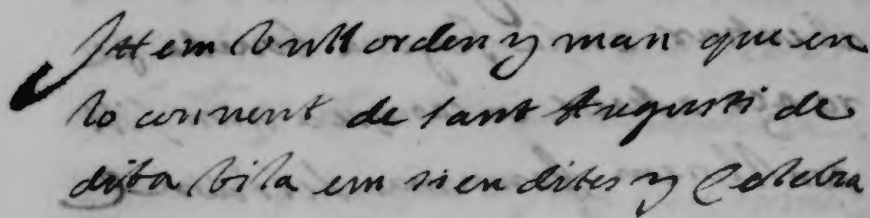 Ittem vull orden y man que en
lo convent de sant Augusti de
dita vila em sien dites y Celebra